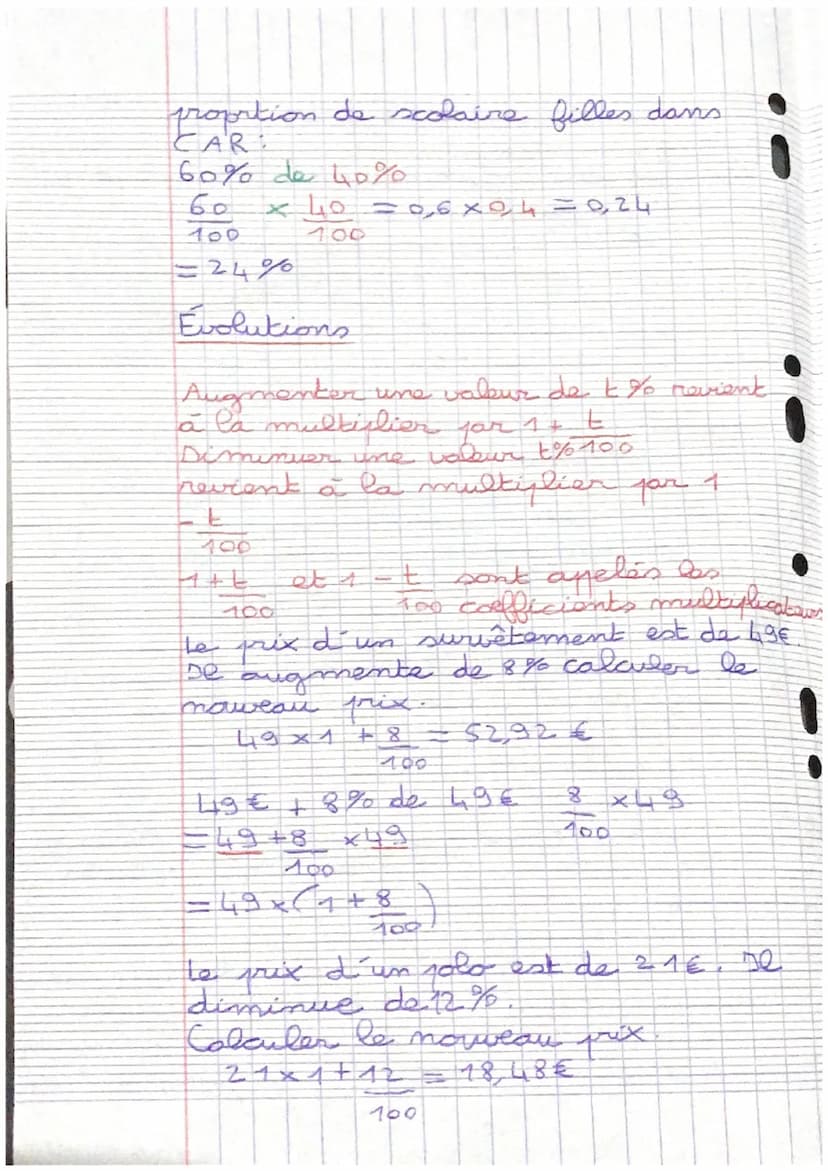 proportion de scolaire filles dans
CAR :
60% de 40%
60/100 × 40/100 = 0,6 × 0,4 = 0,24
= 24 %
Évolutions
Augmenter une valeur de t % revient
à la multiplier par 1 + t/100
Diminuer une valeur t%
revient à la multiplier par 1
- t/100
1 + t/100 et 1 - t/100 sont appelés les
coefficients multiplicateurs
Le prix d'un survêtement est de 49€.
Il augmente de 8% calculer le
nouveau prix.
49 × 1 + 8/100 = 52,92 €
49€ + 8% de 49€ 8/100 × 49
= 49 + 8/100 × 49
= 49 × (1 + 8/100)
Le prix d'un polo est de 21€. Il
diminue de 12%.
Calculer le nouveau prix.
21 × 1 + 12/100 = 18,48€